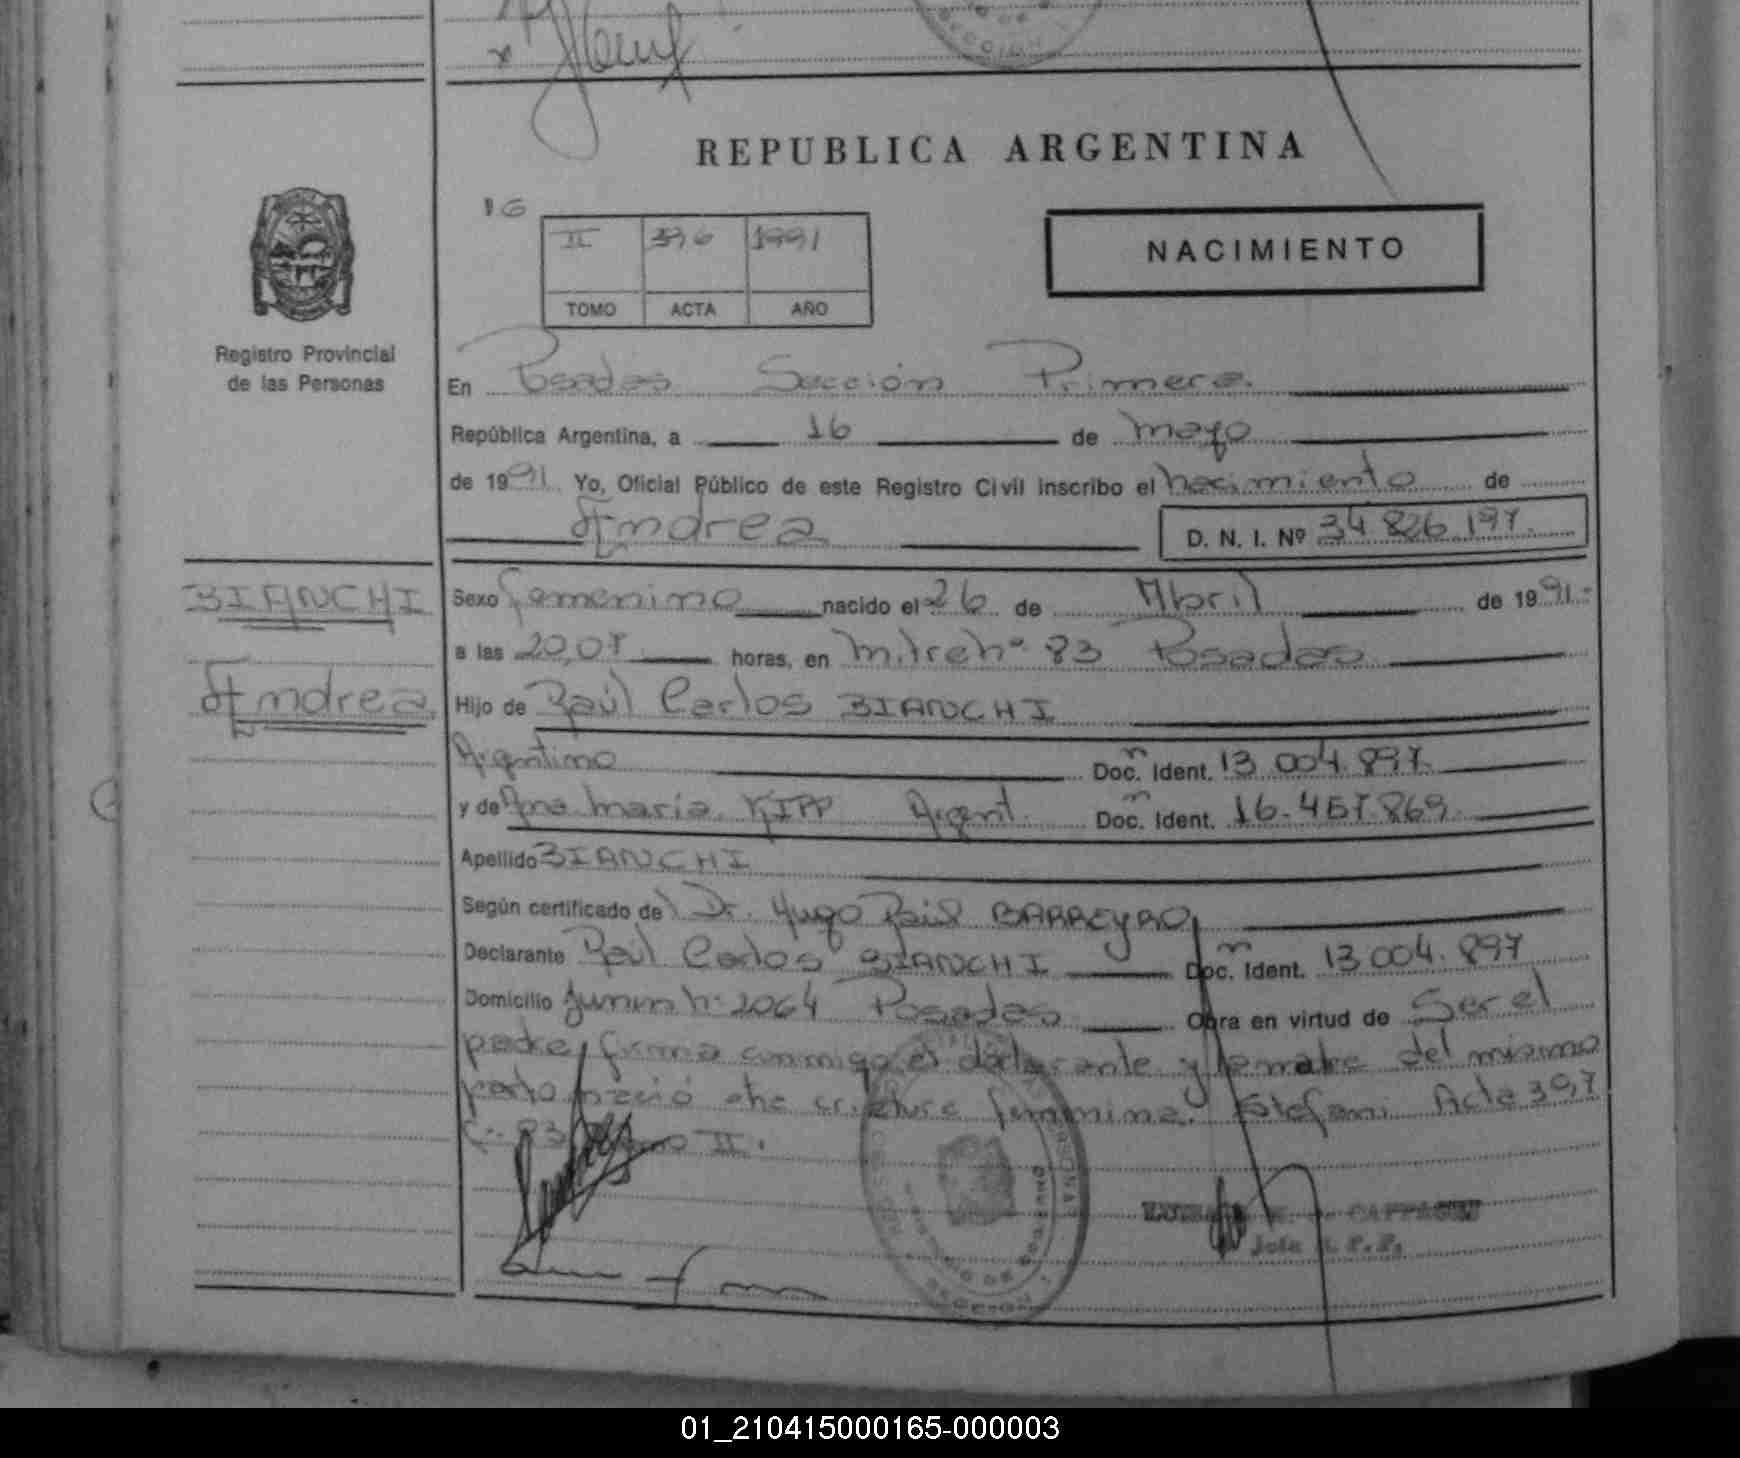 REPUBLICA ARGENTINA
II 396 1991
TOMO ACTA AÑO
NACIMIENTO
Registro Provincial
de las Personas
En Posadas Sección Primera
República Argentina, a 16 de mayo
de 1991 Yo, Oficial Público de este Registro Civil inscribo el nacimiento de
Andrea D. N. I. Nº 34.826.197.
BIANCHI
Andrea
Sexo femenino nacido el 26 de Abril de 1991.-
a las 20,07 horas, en Mitre nº 83 Posadas
Hijo de Raúl Carlos BIANCHI
Argentino Doc. Ident. 13.004.897.
y de Ana María KIPP Argent. Doc. Ident. 16.457.869.
Apellido BIANCHI
Según certificado del Dr. Hugo Raúl BARREYRO
Declarante Raúl Carlos BIANCHI Doc. Ident. 13.004.897
Domicilio Junin nº 2064 Posadas Obra en virtud de Ser el
padre, firma conmigo el declarante y la madre del mismo
parto nació otra criatura femenina. Estefani Acta 397
83 Tomo II.
01_210415000165-000003